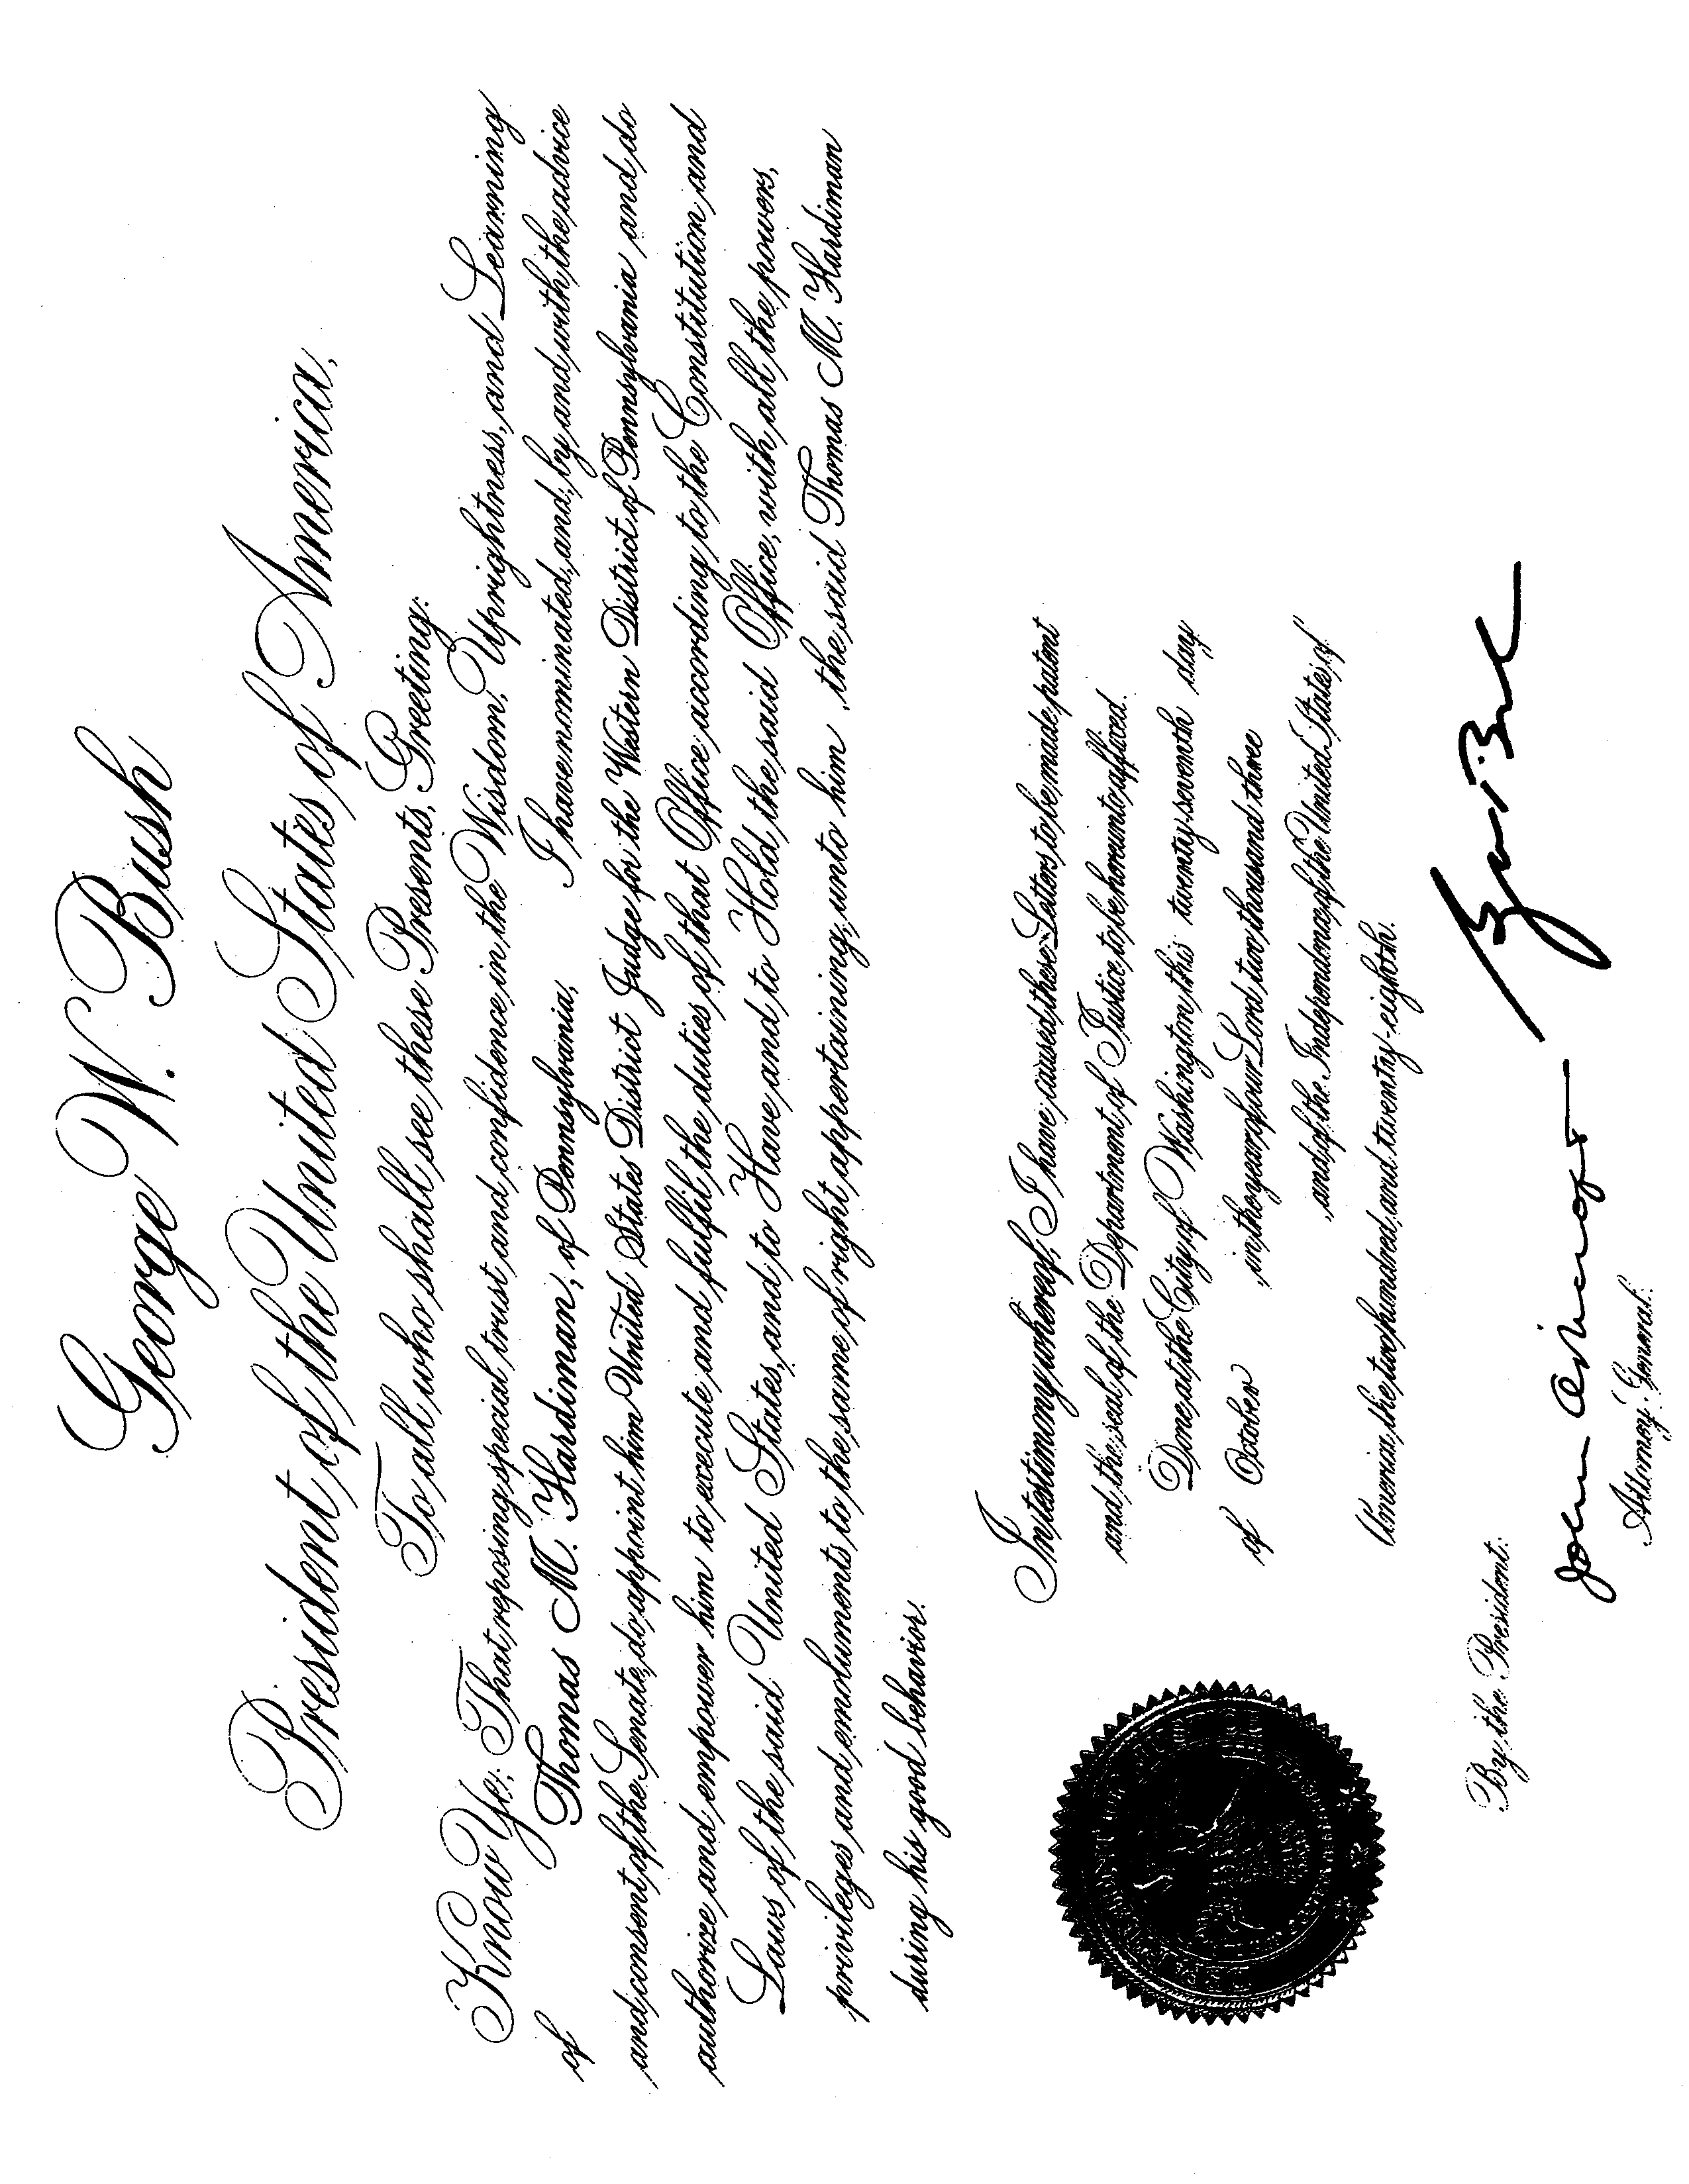 George W. Bush
President of the United States of America,
To all who shall see these Presents, Greeting:
Know Ye: That reposing special trust and confidence in the Wisdom, Uprightness, and Learning
of Thomas M. Hardiman, of Pennsylvania, I have nominated, and, by and with the advice
and consent of the Senate, do appoint him United States District Judge for the Western District of Pennsylvania and do
authorize and empower him to execute and fulfil the duties of that Office according to the Constitution and
Laws of the said United States, and to Have and to Hold the said Office, with all the powers,
privileges and emoluments to the same of right appertaining, unto him, the said Thomas M. Hardiman
during his good behavior.
In testimony whereof, I have caused these Letters to be made patent
and the seal of the Department of Justice to be hereunto affixed.
Done at the City of Washington this twenty-seventh day
of October in the year of our Lord two thousand three
and of the Independence of the United States of
America the two hundred and twenty-eighth.
By the President:
John Ashcroft
Attorney General.